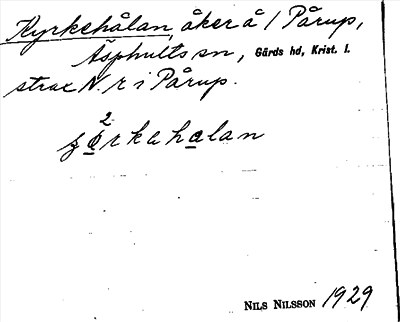 Kyrkehålan, åker å 1 Pårup,
Äsphults sn, Gärds hd, Krist. l.
strax N. r i Pårup.
2
ʒörkahalan
NILS NILSSON 1929